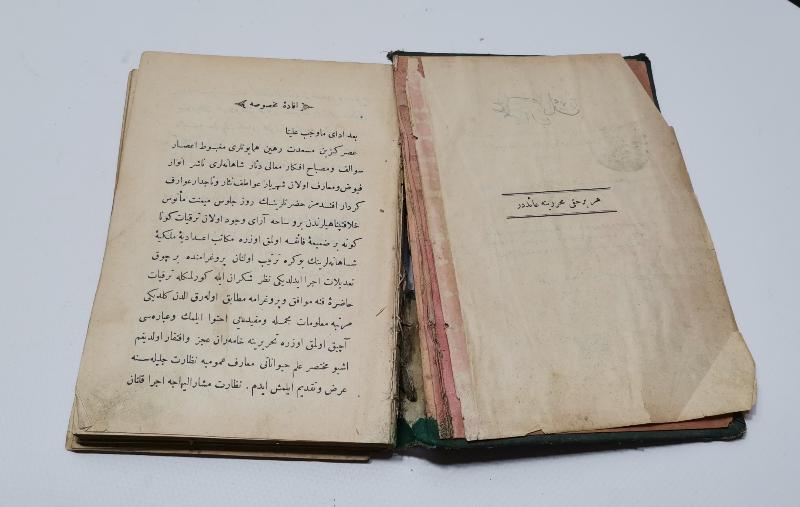 هر برحق محررینه عائددر
افادهٔ مخصوصه
بعد ادای ماوجب علینا
عصر کزین مسعدت رهین همایونلری مغبوط اعصار
سوالف ومصباح افکار معالی دثار شاهانه‌لری ناشر انوار
فیوض ومعارف اولان شهریار عواطف‌نثار وتاجدار عوارف
کردار افندمز حضرتلرینك روز جلوس میمنت مأنوس
خلافتپناهیلرندن برو ساحه آرای وجود اولان ترقیات کونا
کونه بر ضمیمهٔ فائقه اولمق اوزره مکاتب اعدادیهٔ ملکیهٔ
شاهانه‌لرینك بوکره ترتیب اولنان پروغرامنده بر چوق
تعدیلات اجرا ایدلدیکی نظر شکران ایله کورلمکله ترقیات
حاضرهٔ فنه موافق وپروغرامه مطابق اوله‌رق الدن کلدیکی
مرتبه معلومات مجمله ومفیده‌یی احتوا ایلمك وعباره‌سی
آچیق اولمق اوزره تحریرینه خامه‌ران عجز وافتقار اولدیغم
اشبو مختصر علم حیواناتی معارف عمومیه نظارت جلیله‌سنه
عرض وتقدیم ایلمش ایدم. نظارت مشارالیهاجه اجرا قلنان